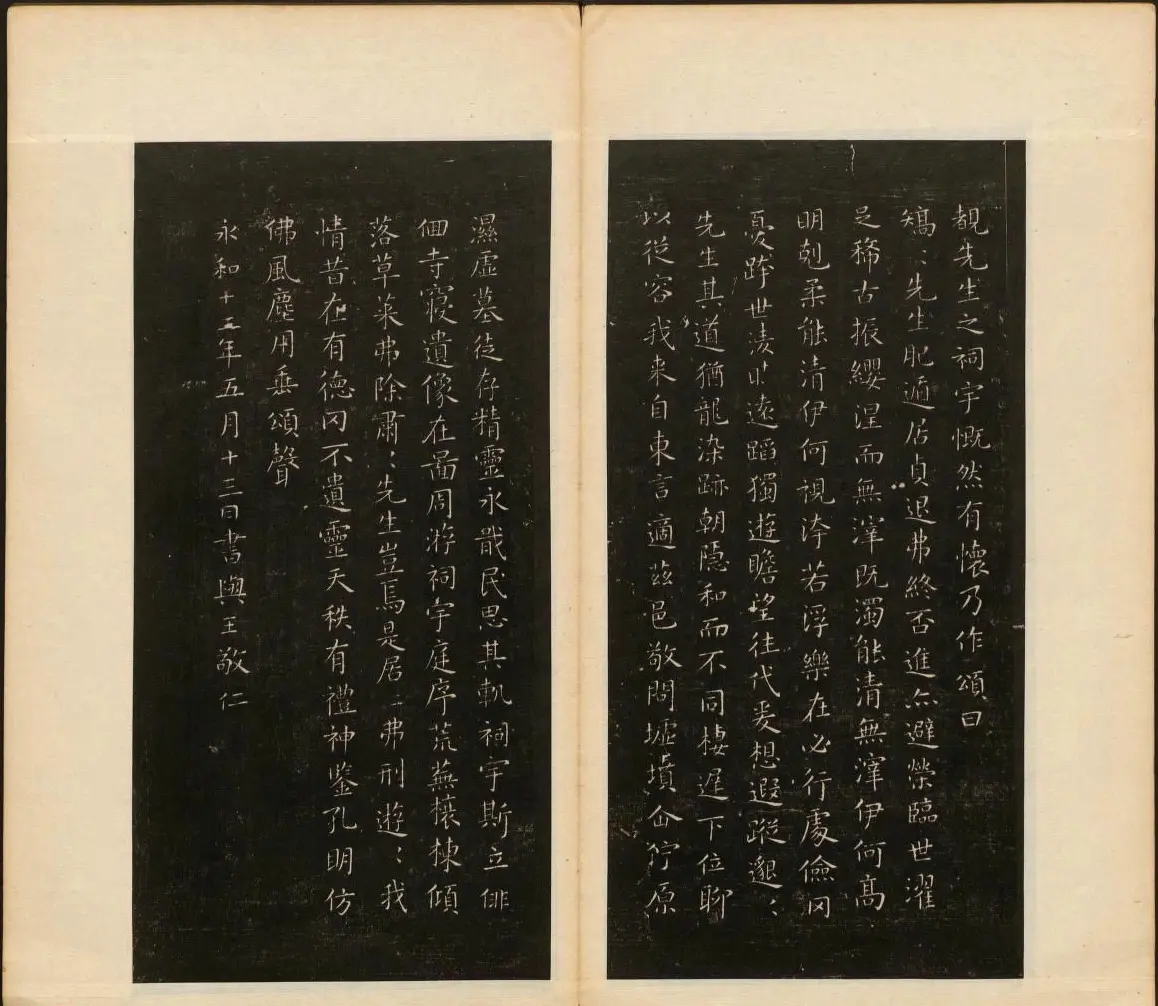 覩先生之祠宇慨然有懷乃作頌曰
矯〻先生肥遁居貞退弗終否進亦避榮臨世濯
足稀古振纓涅而無滓既濁能清無滓伊何高
明剋柔能清伊何視污若浮樂在必行處儉罔
憂跨世淩時遠蹈獨遊瞻望往代爰想遐蹤邈〻
先生其道猶龍染跡朝隱和而不同棲遲下位聊
以從容我来自東言適茲邑敬問墟墳企佇原
濕虛墓徒存精靈永戢民思其軌祠宇斯立俳
佪寺寢遺像在圖周游祠宇庭序荒蕪榱棟傾
落草萊弗除肅〻先生豈焉是居〻弗刑遊〻我
情昔在有德罔不遺靈天秩有禮神鉴孔明仿
佛風塵用垂頌聲
永和十二年五月十三日書與王敬仁